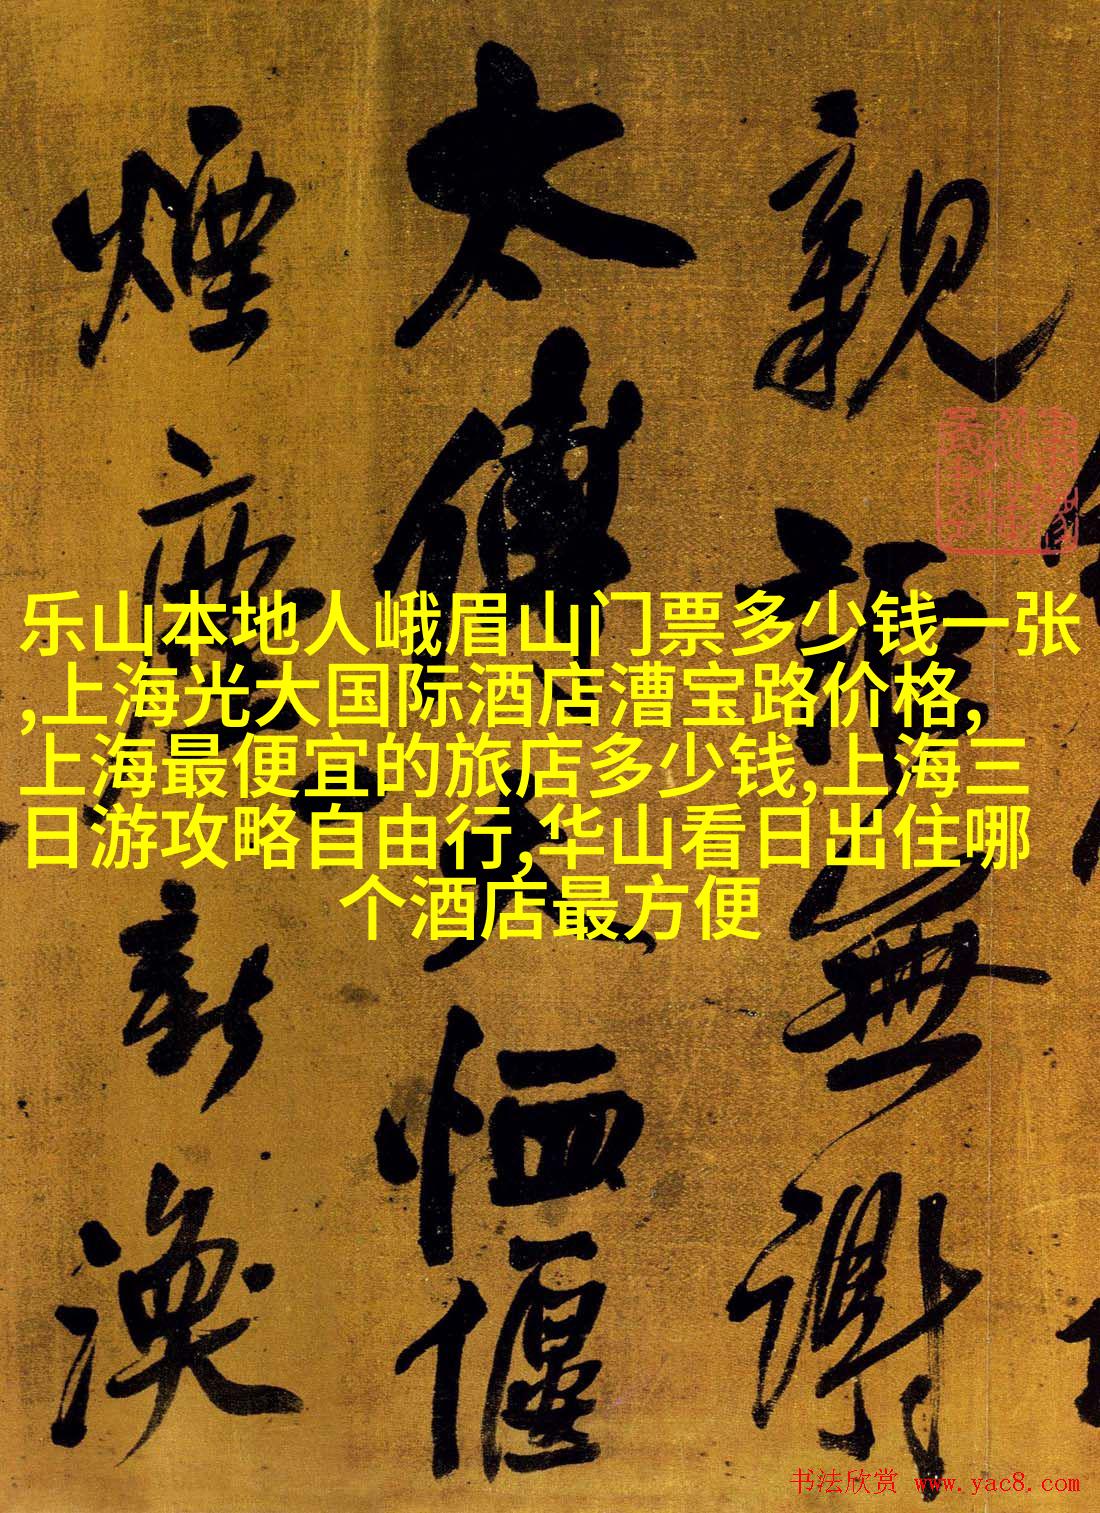 親顏無謝
太傅大恤偃
煙塵新渙
乐山本地人峨眉山门票多少钱一张
,上海光大国际酒店漕宝路价格,
上海最便宜的旅店多少钱,上海三
日游攻略自由行,华山看日出住哪
个酒店最方便
书法欣赏 www.yac8.com